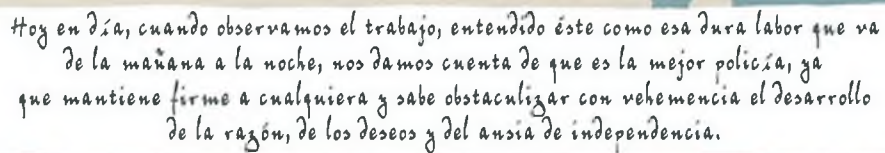 Hoy en día, cuando observamos el trabajo, entendido éste como esa dura labor que va
de la mañana a la noche, nos damos cuenta de que es la mejor policía, ya
que mantiene firme a cualquiera y sabe obstaculizar con vehemencia el desarrollo
de la razón, de los deseos y del ansia de independencia.